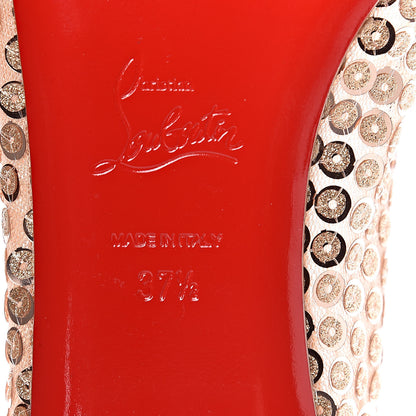 Christian
Louboutin
MADE IN ITALY
37½